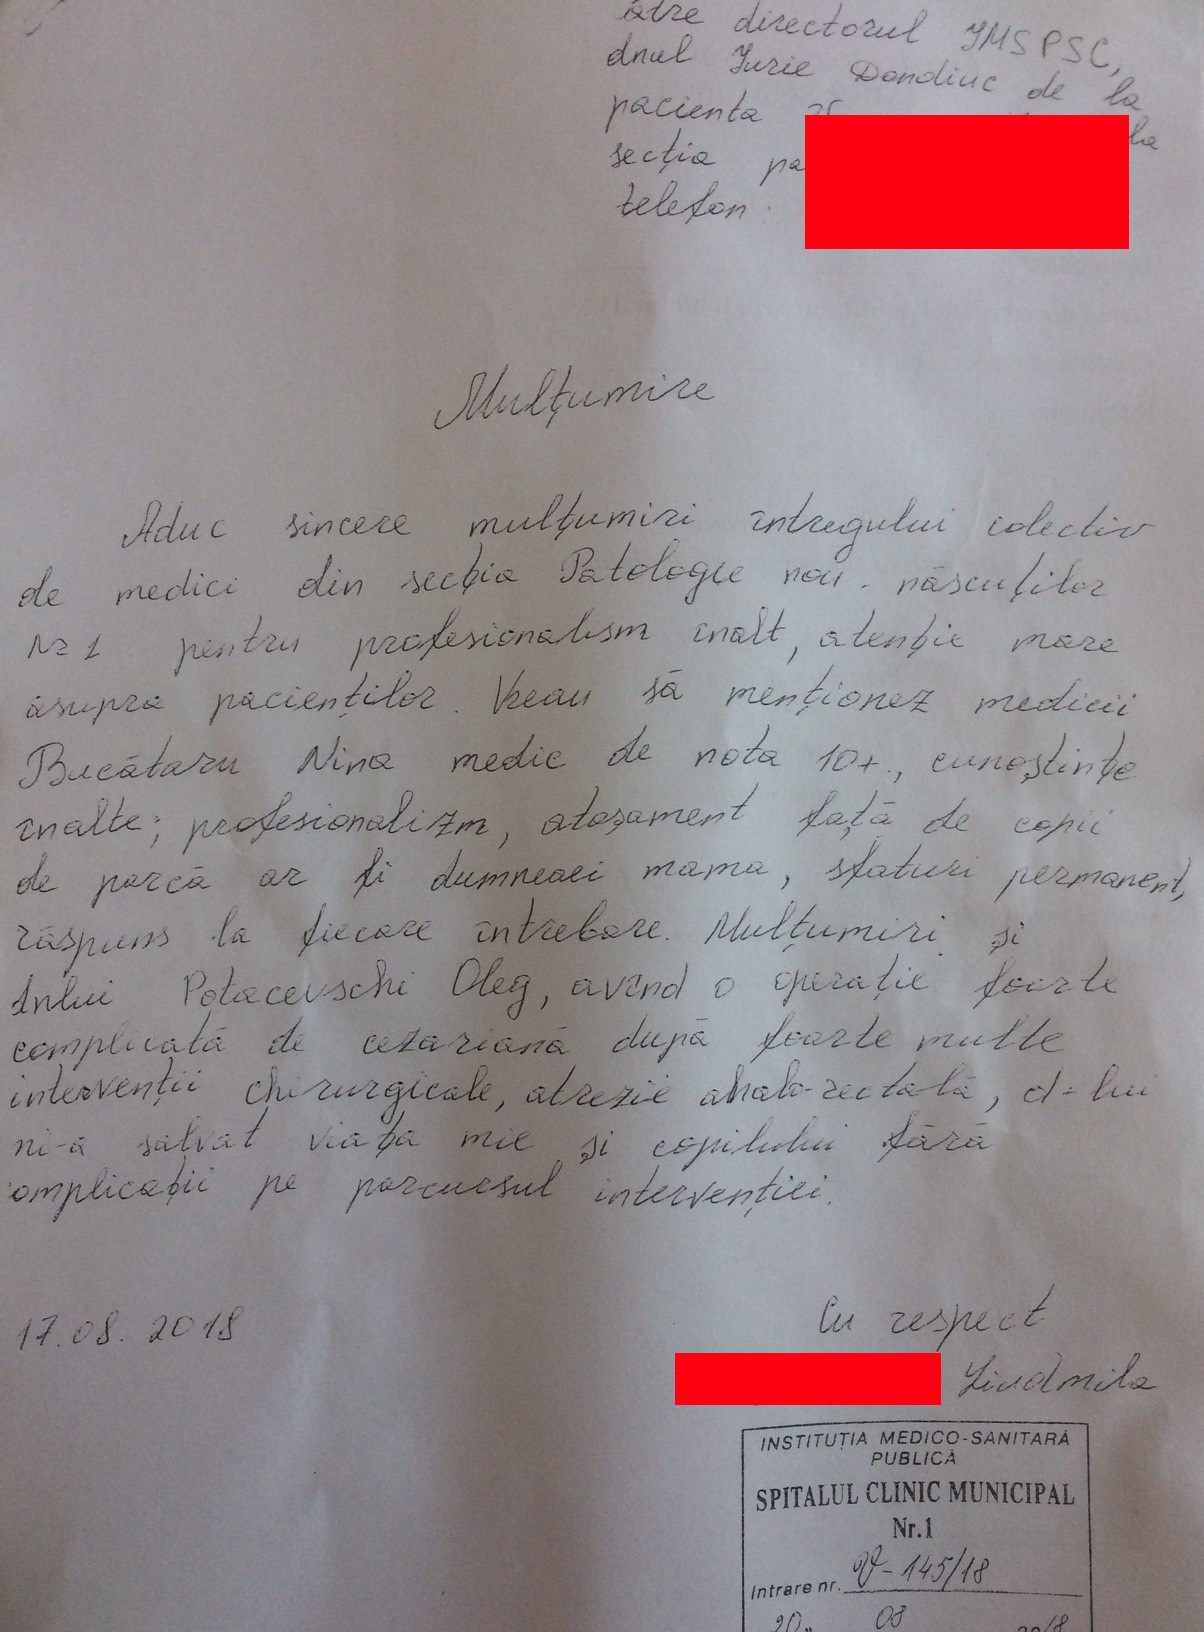 ătre directorul IMSPSC,
dnul Iurie Dondiuc de la
pacienta la
secția pa
telefon:
Mulțumire
Aduc sincere mulțumiri întregului colectiv
de medici din secția Patologie nou-născuților
Nr 1 pentru profesionalism înalt, atenție mare
asupra pacienților. Vreau să menționez medicii
Bucătaru Nina medic de nota 10+, cunoștințe
înalte; profesionalizm, atașament față de copii
de parcă ar fi dumneaei mama, sfaturi permanent,
răspuns la fiecare întrebare. Mulțumiri și
dnlui Potacevschi Oleg, avînd o operație foarte
complicată de cezariană după foarte multe
intervenții chirurgicale, atrezie analo-rectală, d-lui
ni-a salvat viața mie și copilului fără
omplicații pe parcursul intervenției.
17.08.2018
Cu respect
Liudmila
INSTITUȚIA MEDICO-SANITARĂ
PUBLICĂ
SPITALUL CLINIC MUNICIPAL
Nr.1
Intrare nr. 145/18
20" 08 2018